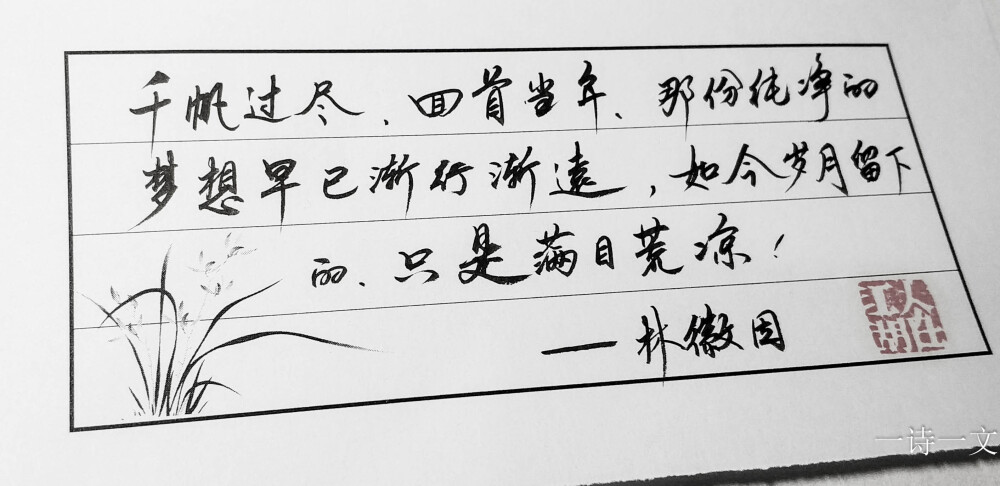 千帆过尽、回首当年、那份纯净的
梦想早已渐行渐遠，如今岁月留下
的、只是满目荒凉！
——林徽因
一诗一文